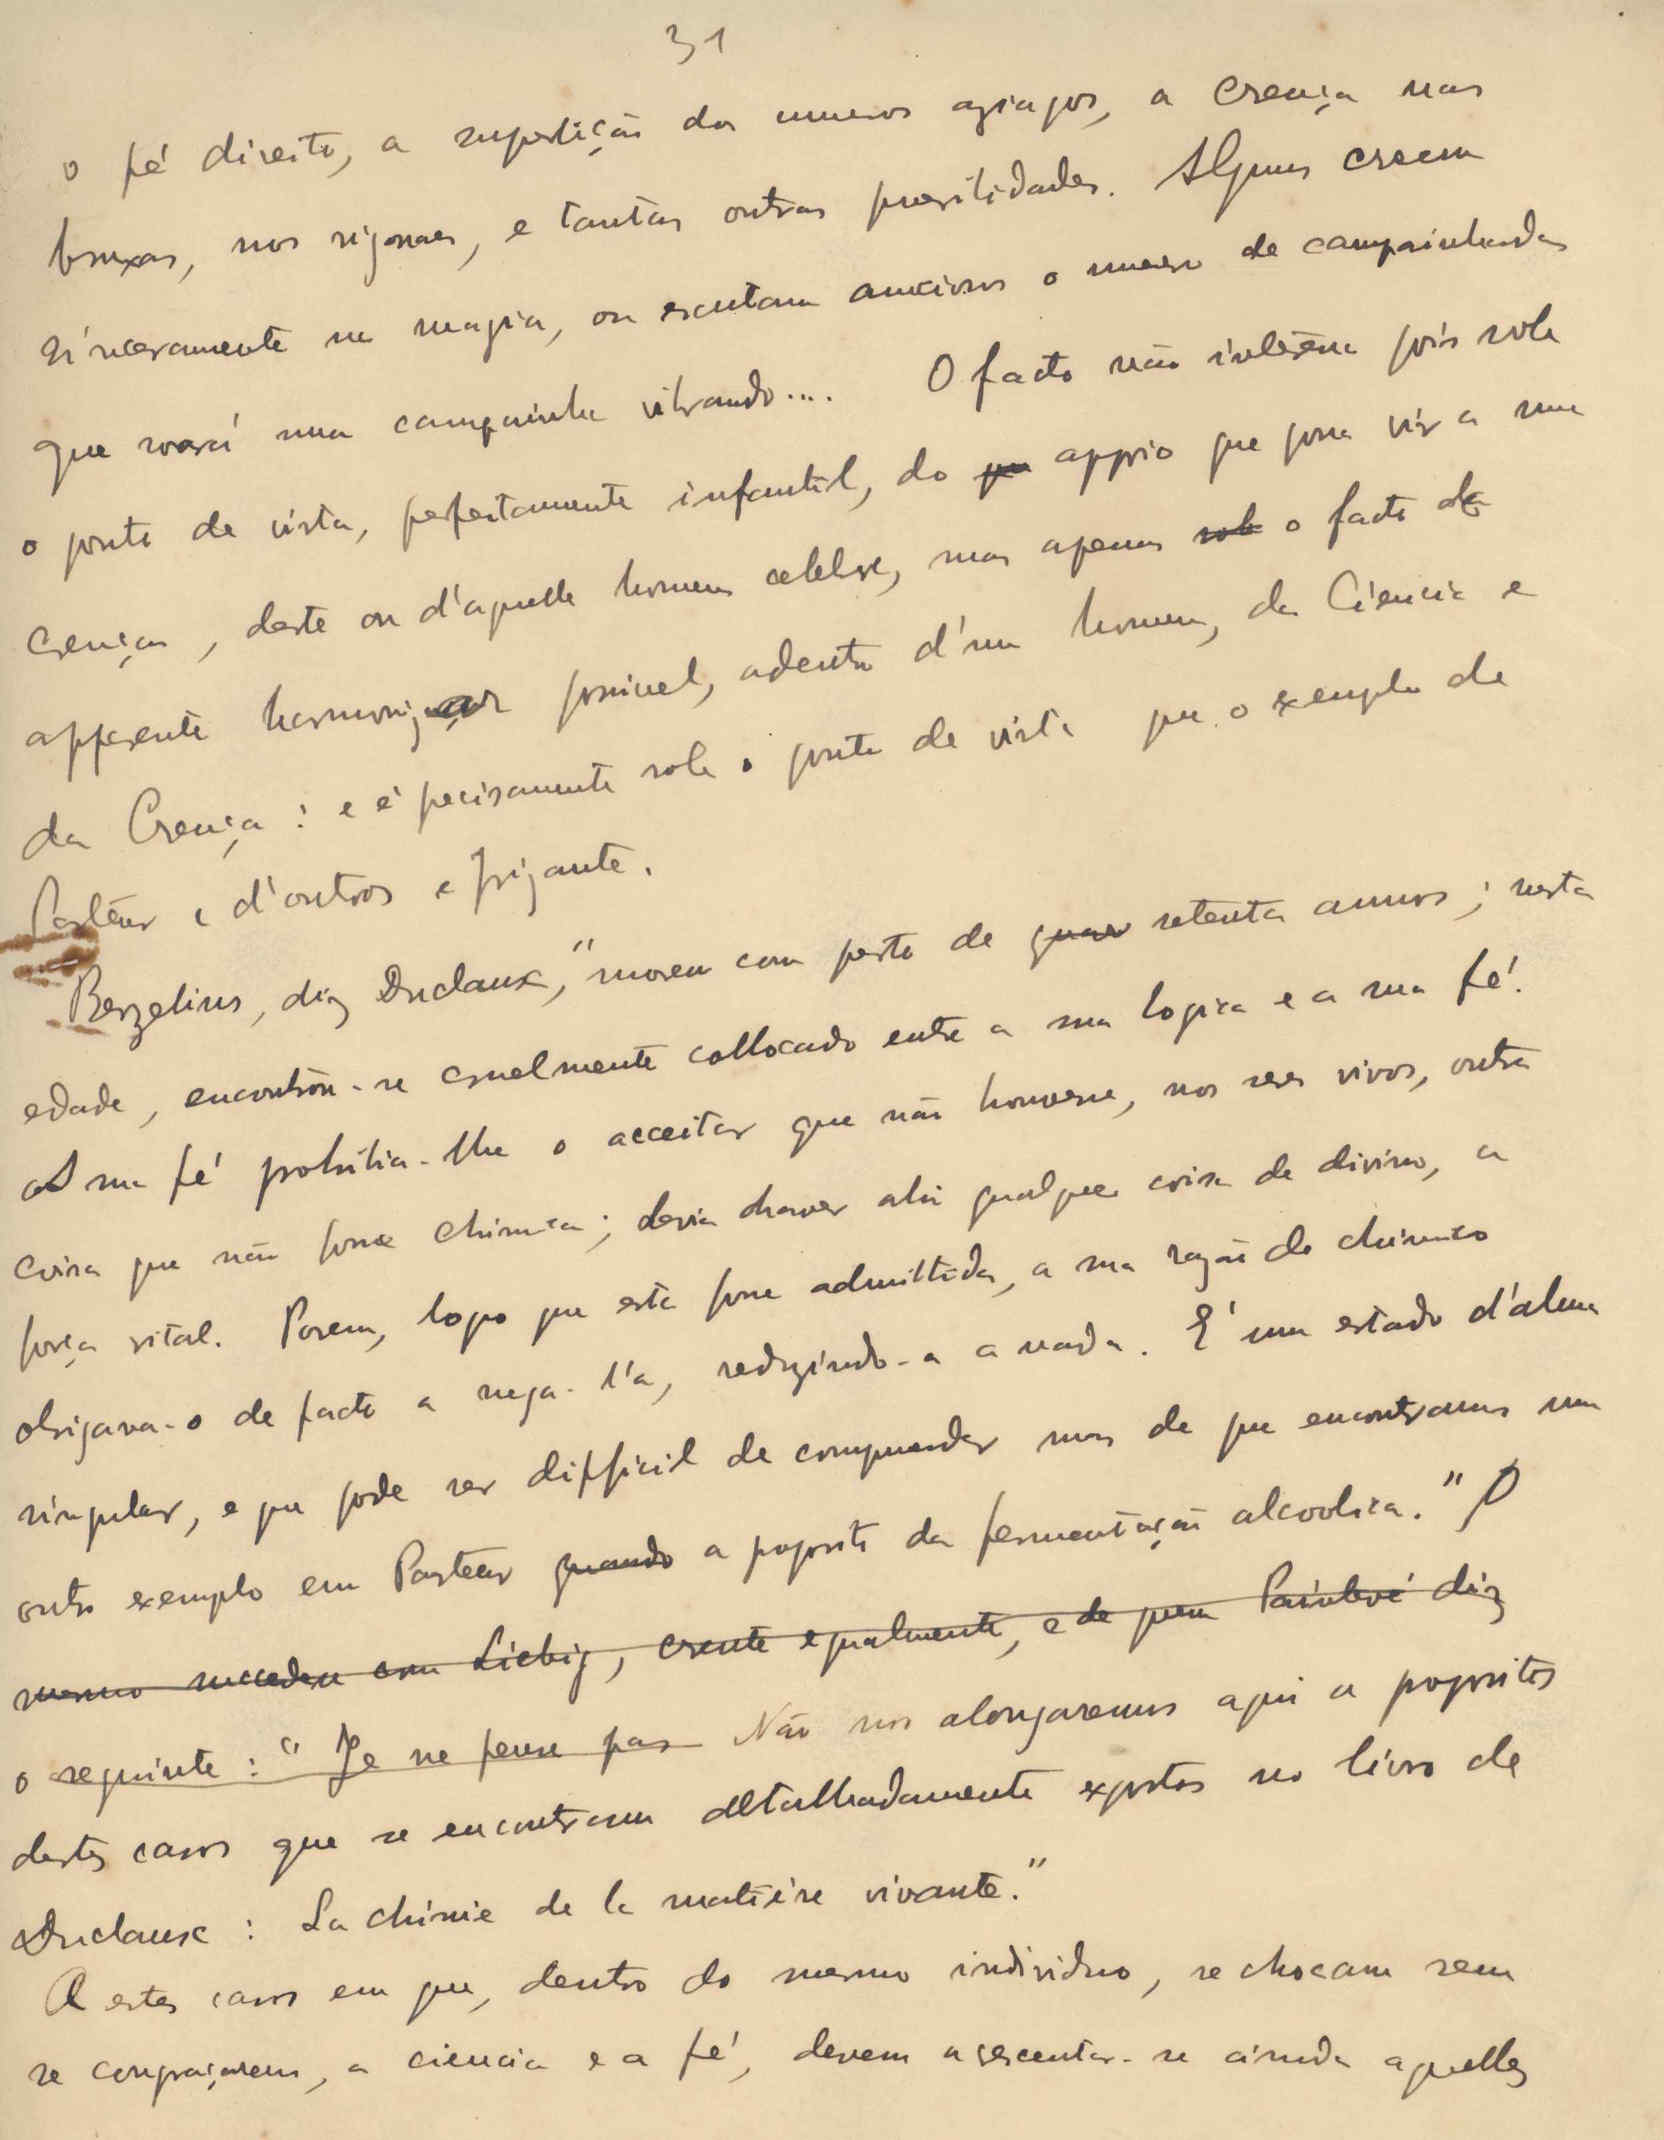 31
o pé direito, a superstição dos numeros aziagos, a crença nas
bruxas, nos signaes, e tantas outras puerilidades. Alguns creem
sinceramente na magia, ou escutam anciosos o numero de campainhadas
que soará uma campainha vibrando.... O facto não interessa pois sob
o ponto de vista, perfeitamente infantil, do apoio que possa vir a uma
crença, deste ou d'aquelle homem celebre, mas apenas sob o facto da
apparente harmonização possivel, adentro d'um homem, da Ciencia e
da Crença: e é precisamente sob o ponto de vista que o exemplo de
Pasteur e d'outros e frizante.
Berzelius, diz Duclaux, "morreu com perto de setenta annos; nesta
edade, encontrou-se cruelmente collocado entre a sua logica e a sua fé.
A sua fé prohibia-lhe o acceitar que não houvesse, nos seres vivos, outra
coisa que não fosse chimica; devia haver ahi qualquer coisa de divino, a
força vital. Porem, logo que esta fosse admittida, a sua razão de chimico
obrigava-o de facto a nega-l'a, reduzindo-a a nada. E' um estado d'alma
singular, e que pode ser difficil de comprehender mas de que encontramos um
outro exemplo em Pasteur quando a proposito da fermentação alcoolica." O
mesmo succedeu com Liebig, crente egualmente, e de quem Painlevé diz
o seguinte: "Je ne pense pas Não nos alongaremos aqui a propositos
destes casos que se encontram detalhadamente expostos no livro de
Duclaux: La chimie de la matière vivante."
A estes casos em que, dentro do mesmo individuo, se chocam sem
se congraçarem, a ciencia e a fé, devem acrescentar-se ainda aquelles